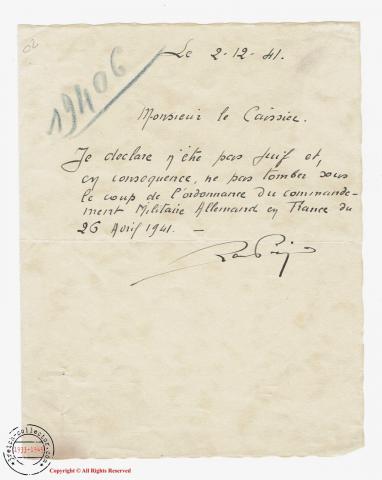 02
19406
Le 2-12-41.
Monsieur le Caissier.
Je declare n'être pas juif et,
en consequence, ne pas tomber sous
le coup de l'ordonnance du commande-
ment Militaire Allemand en France du
26 Avril 1941. —
1933-1945
Copyright © All Rights Reserved